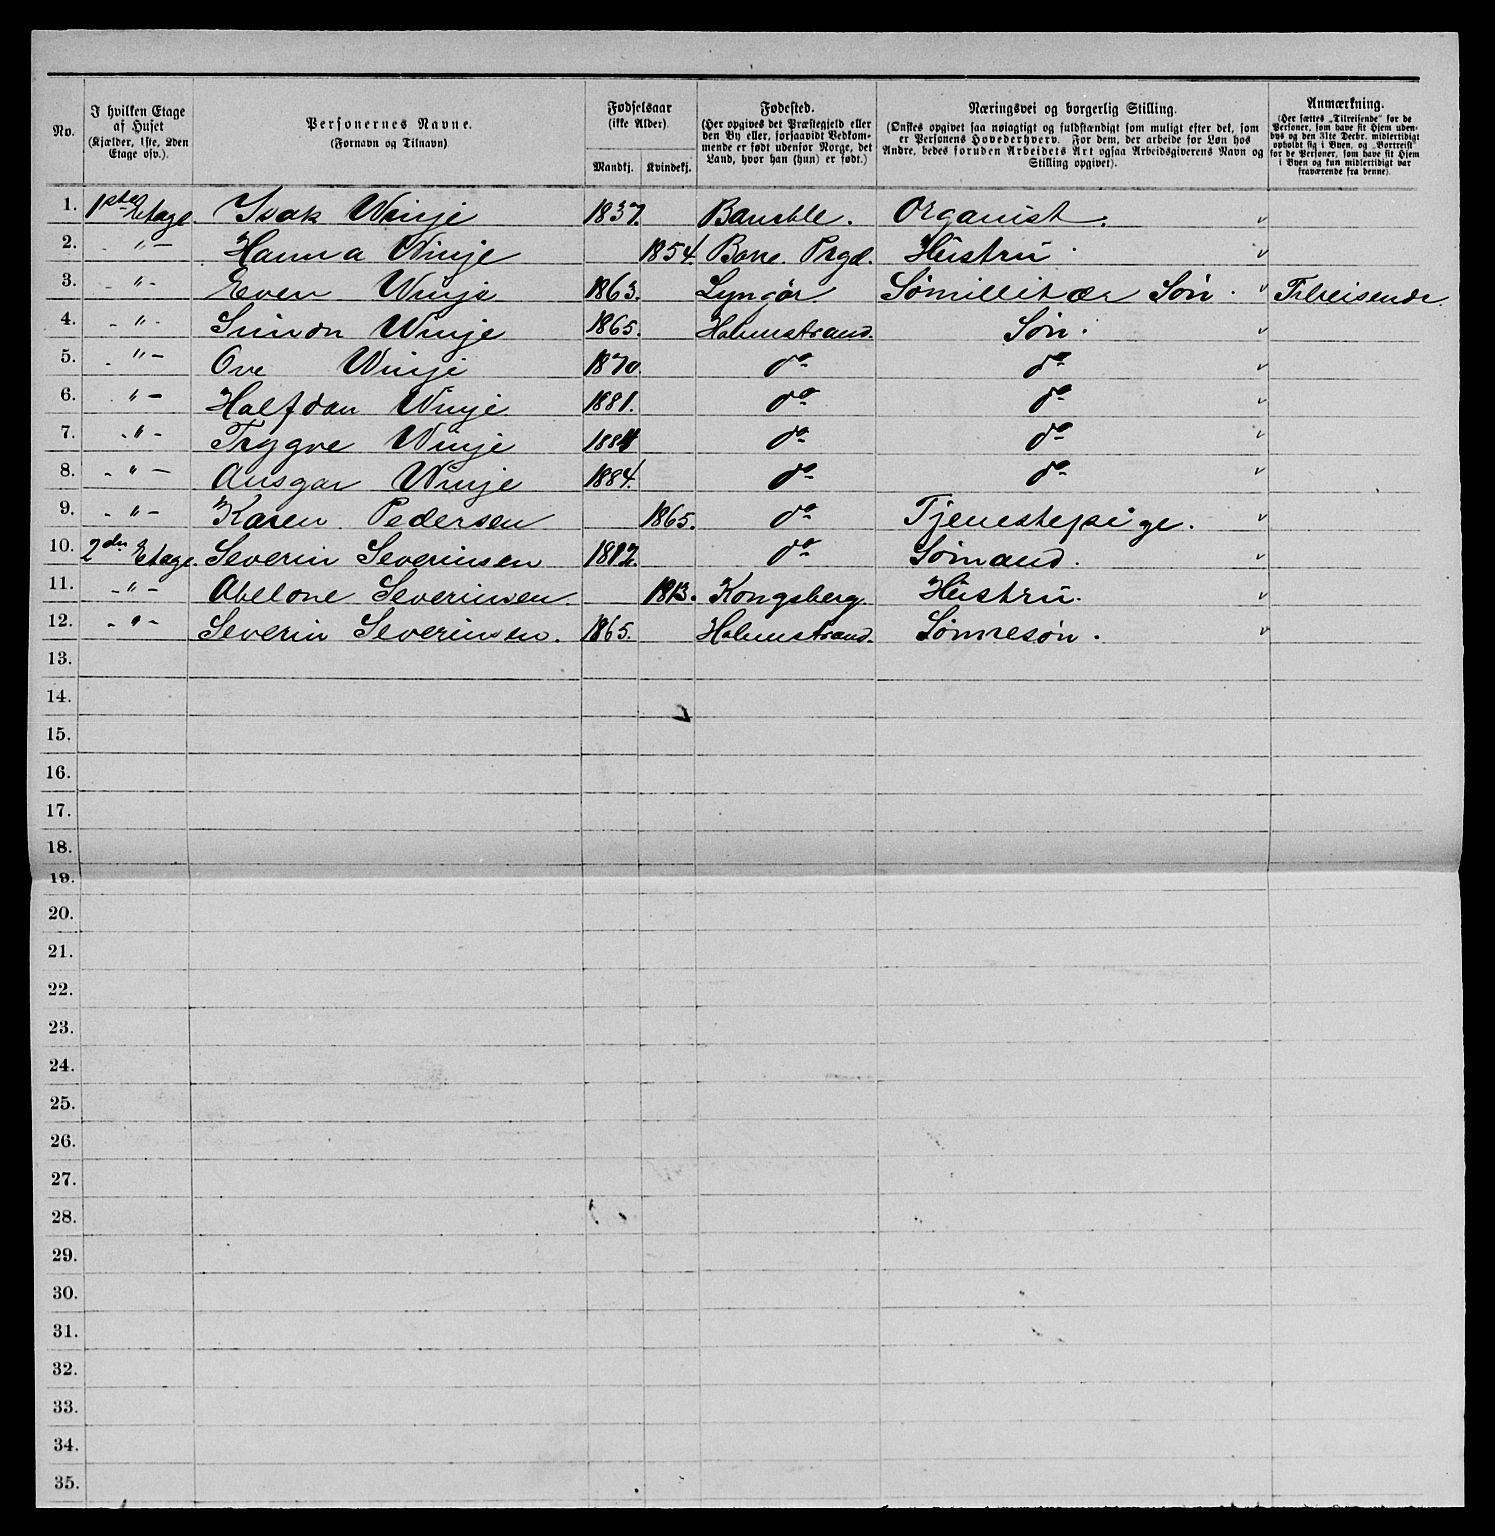 No.
I hvilken Etage
af Huset
(Kjælder, 1ste, 2den
Etage osv.).
Personernes Navne.
(Fornavn og Tilnavn).
Fødselsaar
(ikke Alder).
Mandkj. Kvindekj.
Fødested.
(Her opgives det Præstegjeld eller
den By eller, forsaavidt Vedkom-
mende er født udenfor Norge, det
Land, hvor han (hun) er født.)
Næringsvei og borgerlig Stilling.
(Ønskes opgivet saa nøiagtigt og fuldstændigt som muligt efter det, som
er Personens Hovederhverv. For dem, der arbeide for Løn hos
Andre, bedes foruden Arbeidets Art ogsaa Arbeidsgiverens Navn og
Stilling opgivet).
Anmærkning.
(Her sættes „Tilreisende“ for de
Personer, som have sit Hjem uden-
bys og den 31te Decbr. midlertidigt
opholdt sig i Byen, og „Bortreist“
for de Personer, som have sit Hjem
i Byen og kun midlertidigt var
fraværende fra denne).
1. 1ste Etage. Isak Winje 1837. Bamble. Organist.
2. - " - Hanna Winje 1854. Borre Prgd. Hustru.
3. - " - Even Winje 1863. Lyngør Sømillitær Søn. Tilreisende.
4. - " - Simon Winje 1865. Holmestrand. Søn.
5. - " - Ove Winje 1870. do do
6. " - Halfdan Winje 1881. do do
7. - " - Tryggve Winje 1884 do do
8. - " - Ansgar Winje 1884. do do
9. - " - Karen Pedersen 1865. do Tjenestepige.
10. 2den Etage. Severin Severinsen 1812. do Sømand.
11. - " - Abelone Severinsen. 1813. Kongsberg. Hustru.
12. - " - Severin Severinsen. 1865. Holmestrand. Sønnesøn.
13.
14.
15.
16.
17.
18.
19.
20.
21.
22.
23.
24.
25.
26.
27.
28.
29.
30.
31.
32.
33.
34.
35.